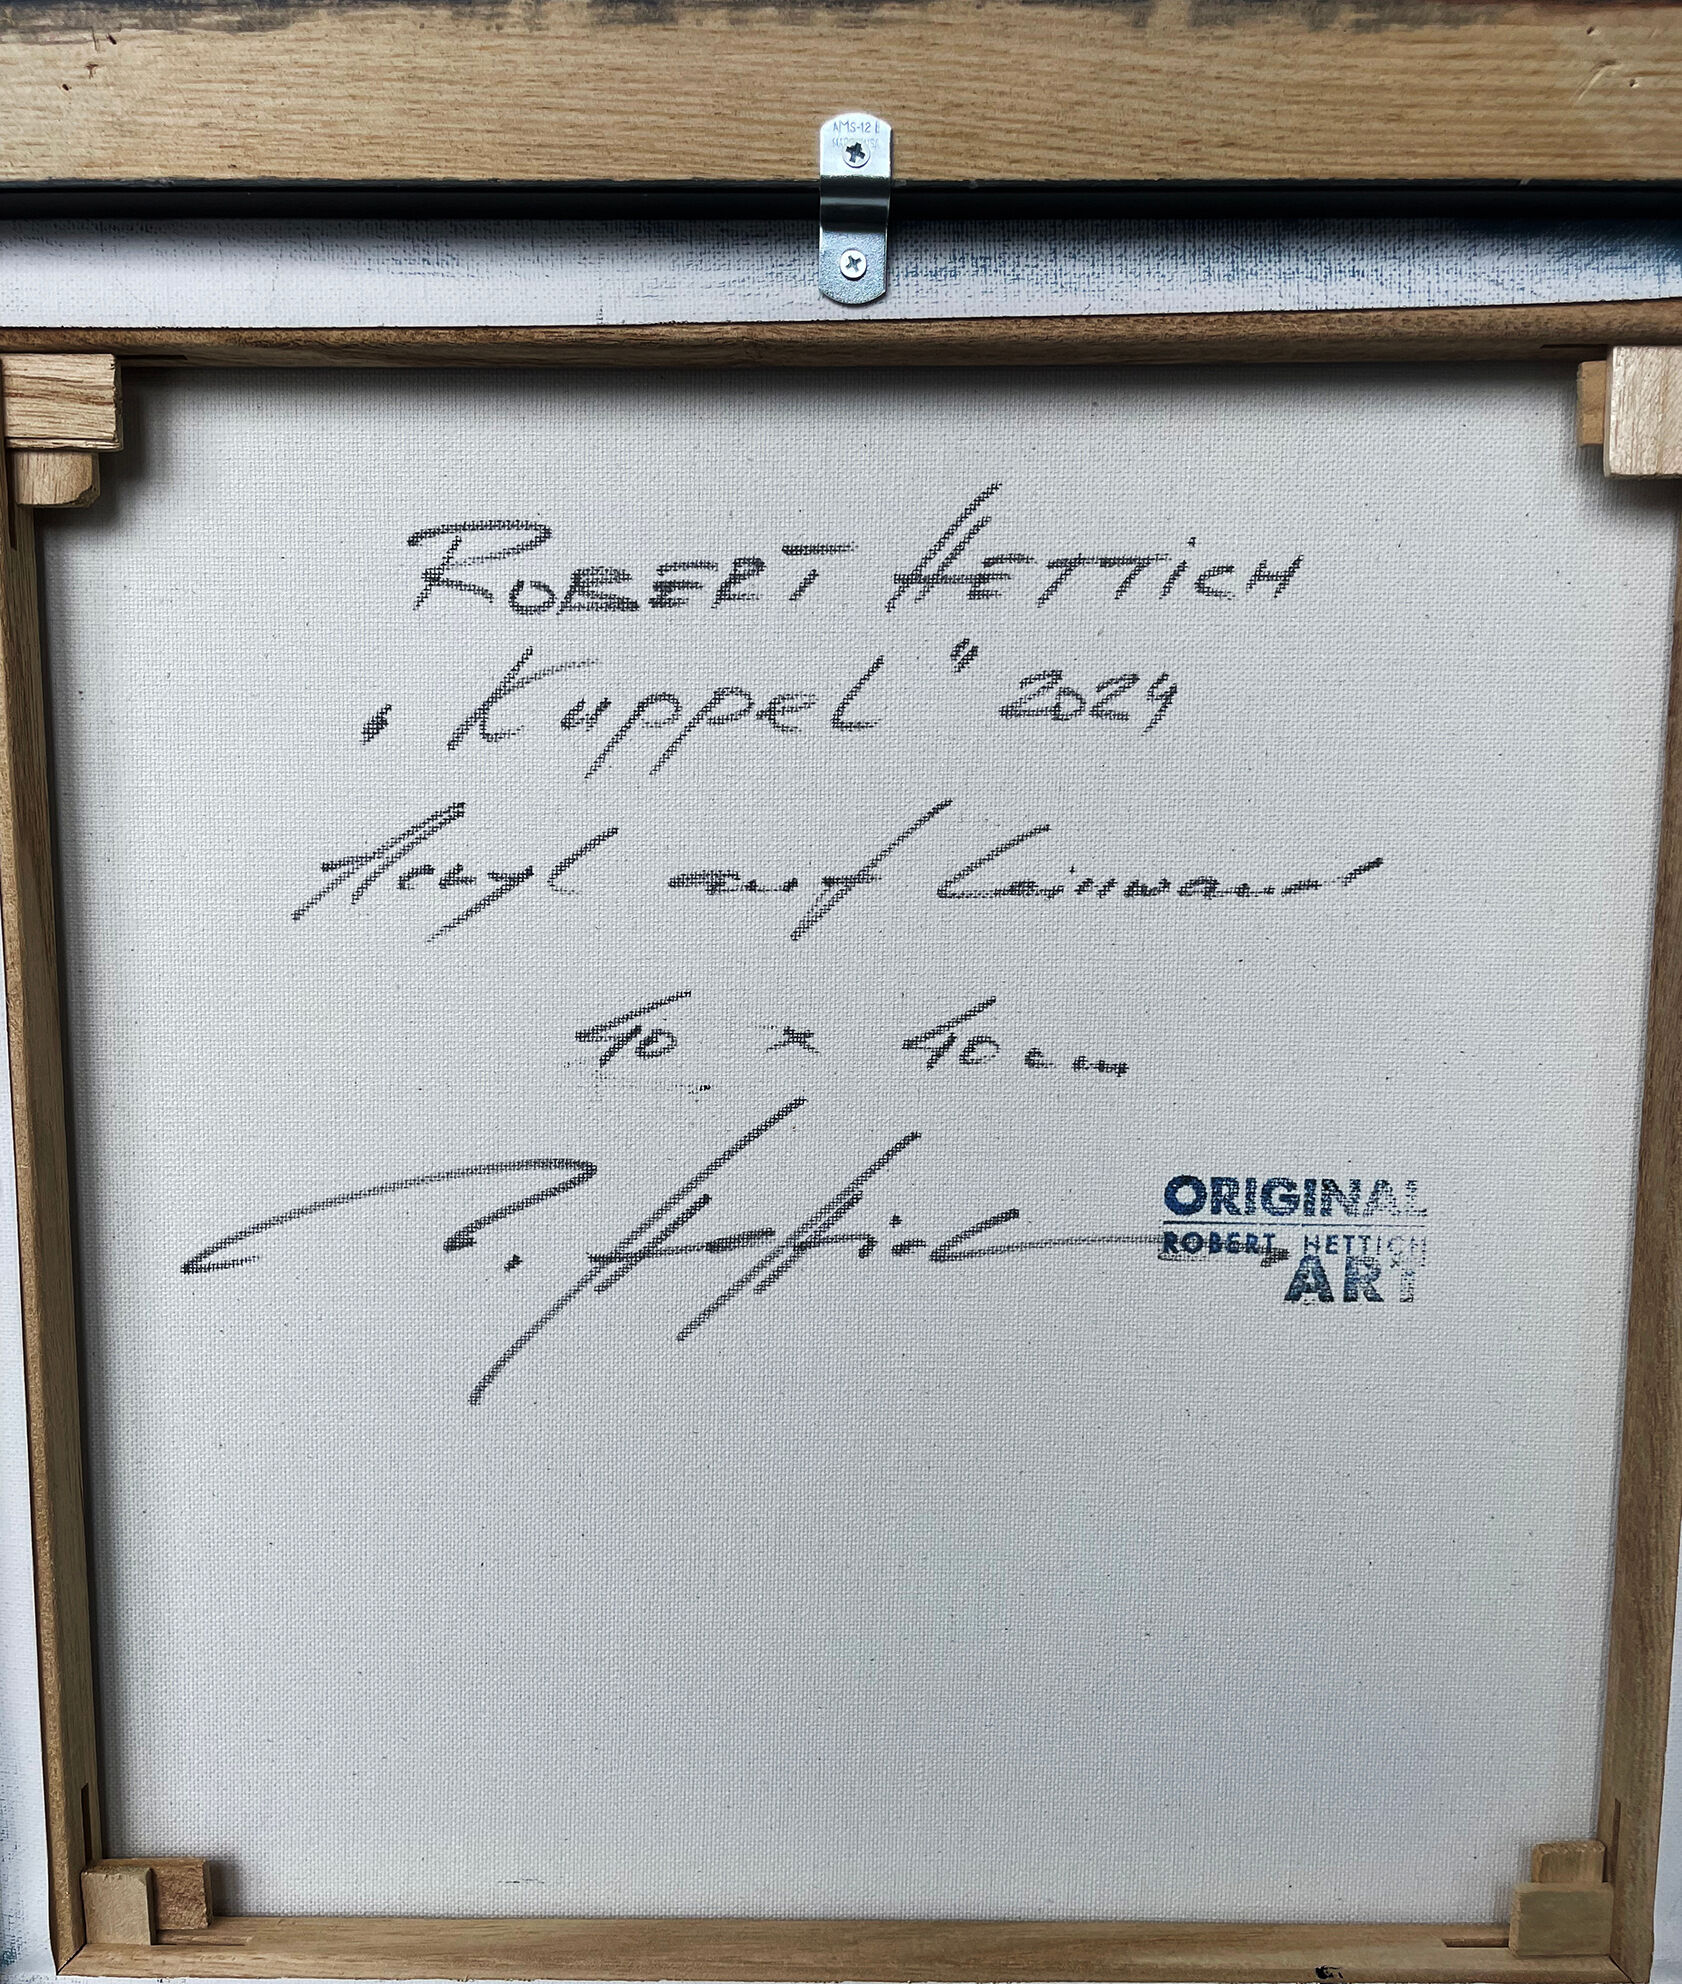 AMS-12
ROBERT HETTICH
„Kuppel" 2024
Acryl auf Leinwand
40 x 40 cm
R. Hettich
ORIGINAL
ROBERT HETTICH
ART